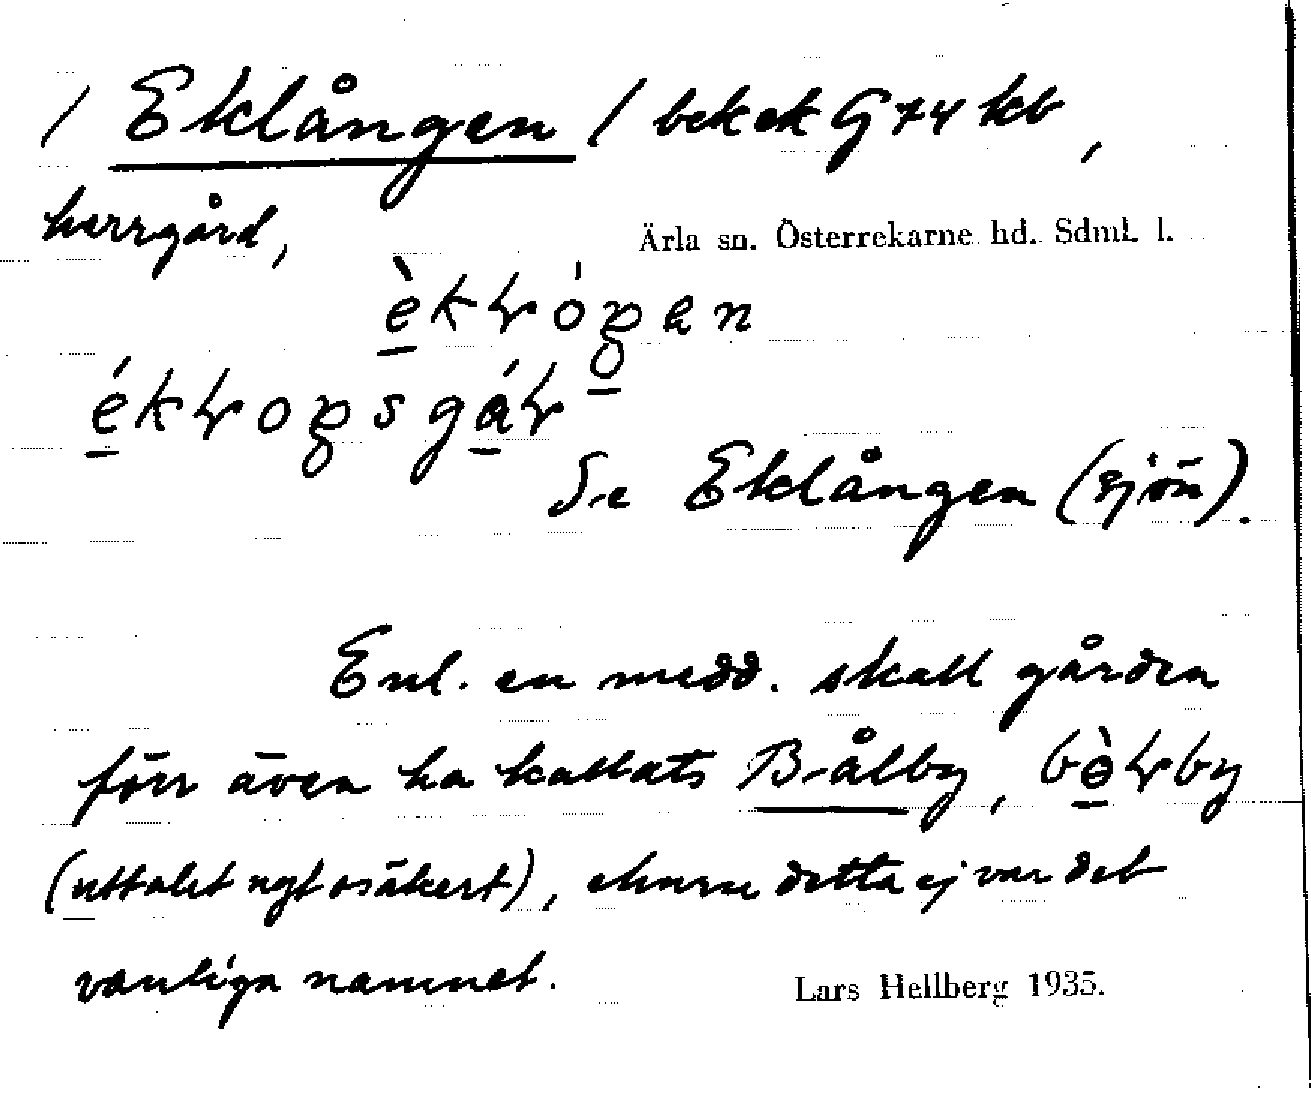 / Eklången / bek ek G74 kb,
herrgård,
Ärla sn. Österrekarne hd. Sdml. l.
èkɫóŋen
o
ékɫoŋsgáɫ
Se Eklången (sjön).
Enl. en medd. skall gården
förr även ha kallats Bålby, bòɫby
(uttalet ngt osäkert), ehuru detta ej var det
vanliga namnet.
Lars Hellberg 1935.